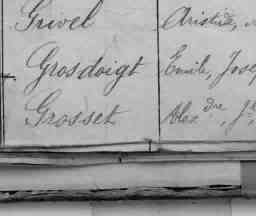 Grivel Aristide,
Grosdoigt Emile, Jose
Grosset Alex.dre, J.